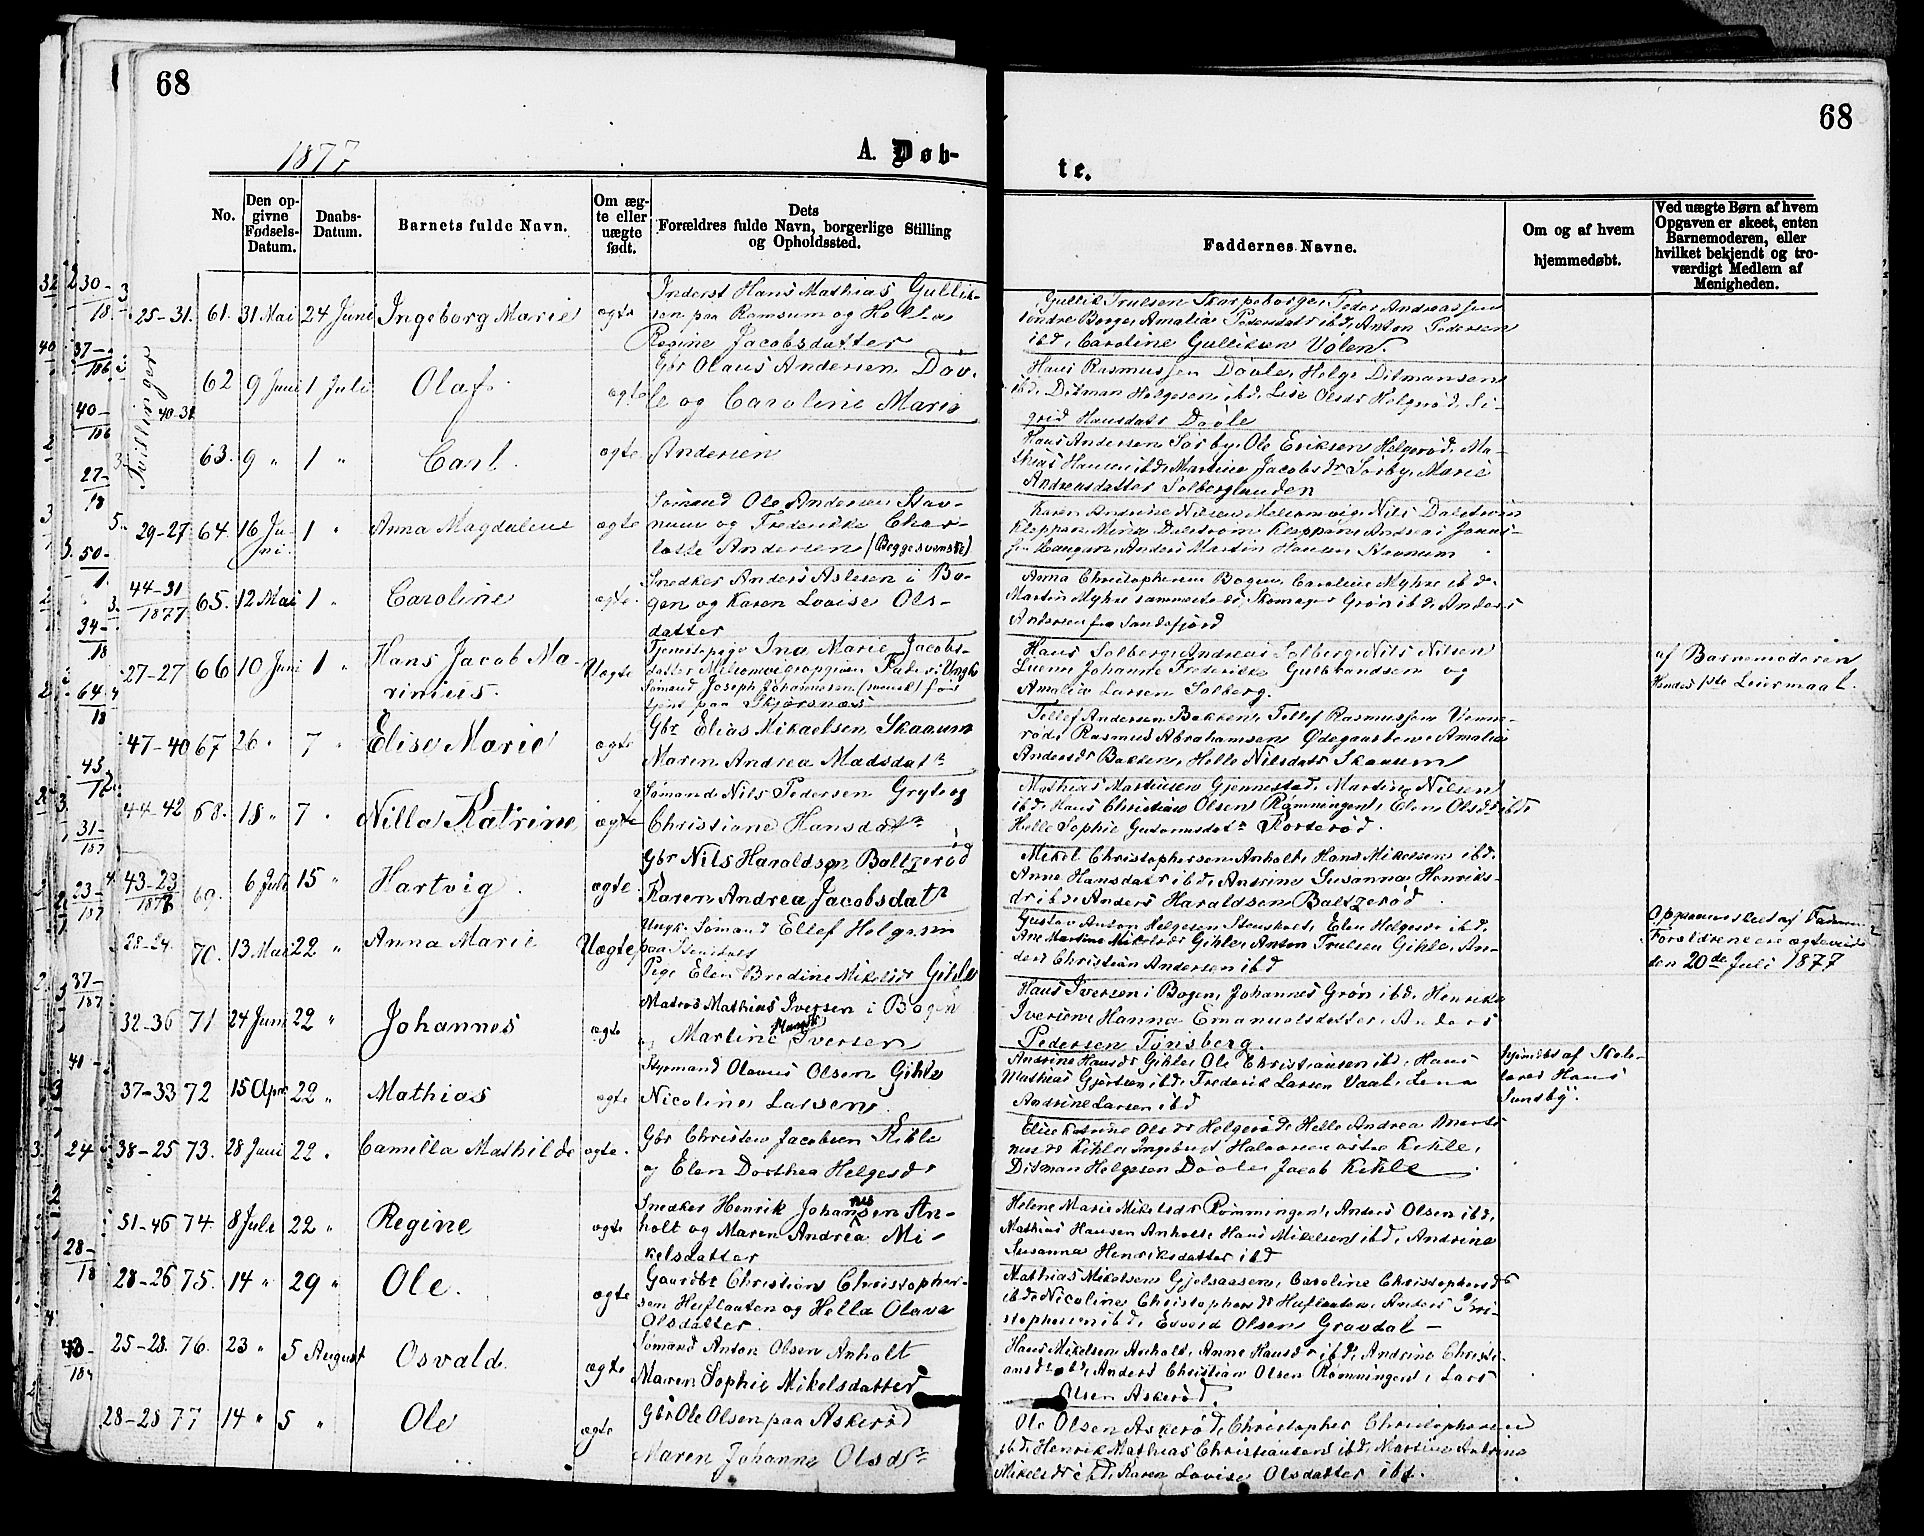 68
68
1877
A. Døb-
te.
No.
Den op-
givne
Fødsels-
Datum.
Daabs-
Datum.
Barnets fulde Navn.
Om æg-
te eller
uægte
født.
Dets
Forældres fulde Navn, borgerlige Stilling
og Opholdssted.
Faddernes Navne.
Om og af hvem
hjemmedøbt.
Ved uægte Børn af hvem
Opgaven er skeet, enten
Barnemoderen, eller
hvilket bekjendt og tro-
værdigt Medlem af
Menigheden.
25-31. 61. 31 Mai 24 Juni Ingeborg Marie ægte
Inderst Hans Mathias Gullik-
sen paa Ramsum og Helta
Regine Jacobsdatter
Gullik Trulsen Skarpeborge, Peder Andreassen
søndre Borge, Amalia Pedersdatr ibd, Anton Pedersen
ibd, Caroline Gulliksen Volen.
Tvillinger
40-31
62 9 Juni 1 Juli Olaf ægte
Gbr Olaus Andersen Døv-
le og Caroline Marie
Hans Rasmussen Døvle, Helge Ditmansen
ibd, Ditman Helgesen ibd, Lise Olsdr Helgerød, Si-
grid Hansdatr Døvle
63. 9 " 1 " Carl. ægte
Andersen
Hans Andersen Sørby, Ole Eriksen Helgerød, Ma-
thias Hansen ibd, Martine Jacobsdr Sørby, Maren
Andreasdatter Solberglunden
29-27 64. 16 Ju-
ni 1 " Anna Magdalene ægte
Sømand Ole Andersen Stav-
num og Frederikke Char-
lotte Andersen (Begge svenske)
Karen Andrine Nilsen, Mellomvig, Nils Dalstrøm
Kleppan, Mina Dalstrøm Kleppan, Andreas
Haugan, Anders Martin Hansen Stavnum
44-31
1877 65. 12 Mai 1 " Caroline ægte.
Snedker Anders Aslesen i Bo-
gen og Karen Lovise Ols-
datter
Anna Christophersen Bogen, Caroline Myhre ibd.
Martin Myhre sammesteds, Skomager Grøn ibd, Anders
Andersen fra Sandefjord
27-27 66 10 Juni 1 " Hans Jacob Ma-
rinius. Uægte
Tjenestepige Ina Marie Jacobs-
datter Mellomvig opgiven Fader: Ungk
Sømand Joseph Johannesen (svensk) for
tjent paa Skjærsnæs
Hans Solberg, Andreas Solberg, Nils Nilsen
Lerne, Johanne Frederikke Gulbrandsen og
Amalia Larsen Solberg.
af Barnemoderen
Hendes 1ste Leiermaal.
47-40 67 26 " 7 " Elise Marie ægte
Gbr Elias Mikaelsen Skaaum
Maren Andrea Madsdatr
Tellef Andersen Bakken, Tellef Rasmussen Venne-
rød, Rasmus Abrahamsen Ødegaarden, Amalia
Andersdr Bakken, Helle Nilsdatr Skaaum
44-42 68. 18 " 7 " Nilla Katrine ægte
Sømand Nils Pedersen Gryte og
Christiane Hansdatr
Mathias Martinsen Gjennestad, Martine Nilsen
ibd, Hans Christian Olsen Rømmingen, Elen Olsdr ibd
Helle Sophie Gurinusdatr Korterød.
43-23
1877 69. 6 Juli 15 " Hartvig. ægte.
Gbr Nils Haraldsen Baltzerød
Karen Andrea Jacobsdatr
Mikel Christophersen Anholt, Hans Mikelsen ibd.
Anne Hansdatr ibd, Andrine Susanna Henriks-
dr ibd, Anders Haraldsen Baltzerød.
28-24. 70. 13 Mai 22 " Anna Marie Uægte
Ungk. Sømand Ellef Helgesen
paa Stensholt
Pige Elen Bredine Mikelsdr Gihle
Gustav Anton Helgesen Stensholt, Elen Helgesen ibd.
Ane Martine Mikelsdr Gihle, Anton Trulsen Gihle, An-
ders Christian Andersen ibd
Forældrene ere ægteviede
den 20de Juli 1877
32-36 71 24 Juni 22 " Johannes ægte
Matros Mathias Iversen i Bogen
og Martine Hansdr Iversen
Hans Iversen i Bogen, Johannes Grøn ibd, Henrikke
Iversen, Hanna Emanuelsdatter, Anders
Pedersen Tønsberg.
37-33 72 15 Apr 22 " Mathias ægte
Styrmand Olavus Olsen Gihle
Nicoline Larsen.
Andrine Hansdr Gihle, Ole Christiansen ibd, Hans
Mathias Gjertsen ibd, Frederik Larsen Vaal, Lena
Andrine Larsen ibd
hjemdøbt af Skole-
lærer Hans
Sundby.
38-25 73. 28 Juni 22 " Camilla Mathilde ægte.
Gbr Christen Jacobsen Kihle
og Elen Dorthea Helgesdr
Elise Katrine Olsdr Helgerød, Helle Andrea Anders
nusdr Kihle, Ingebret Halvorsen østre Kihle,
Ditman Helgesen Døvle, Jacob Kihle
51-46 74. 8 Juli 22 " Regine ægte
Snedker Henrik Johannesen An-
holt og Maren Andrea Mi-
kelsdatter
Helene Marie Mikelsdr Rømmingen, Anders Olsen ibd,
Mathias Hansen Anholt, Hans Mikelsen ibd, Andrine
Susanna Henriksdatter ibd
28-26 75. 14 " 29 " Ole. ægte
Gaardbr Christian Christopher-
sen Huflaaten og Hella Olava
Olsdatter.
Mathias Mikelsen Gjelsaasen, Caroline Christophersdr
ibd, Nicoline Christophersdr Huflaaten, Anders Chri-
stophersen ibd, Edvard Olsen Gravdal -
25-28. 76. 23 " 5 August Osvald. ægte
Sømand Anton Olsen Anholt
Maren Sophie Mikelsdatter
Hans Mikelsen Anholt, Anne Hansdr ibd, Andrine Christi-
ansdr ibd, Anders Christian Olsen Rømmingen, Lars
Olsen Askerød.
28-28 77 14 " 5 " Ole ægte
Gbr Ole Olsen paa Askerød
Maren Johanne Olsdr
Ole Olsen Askerød, Christopher Christophersen
ibd, Henrik Mathias Christiansen ibd, Martine Andrine
Mikelsdr ibd, Karen Lovise Olsdatter ibd.